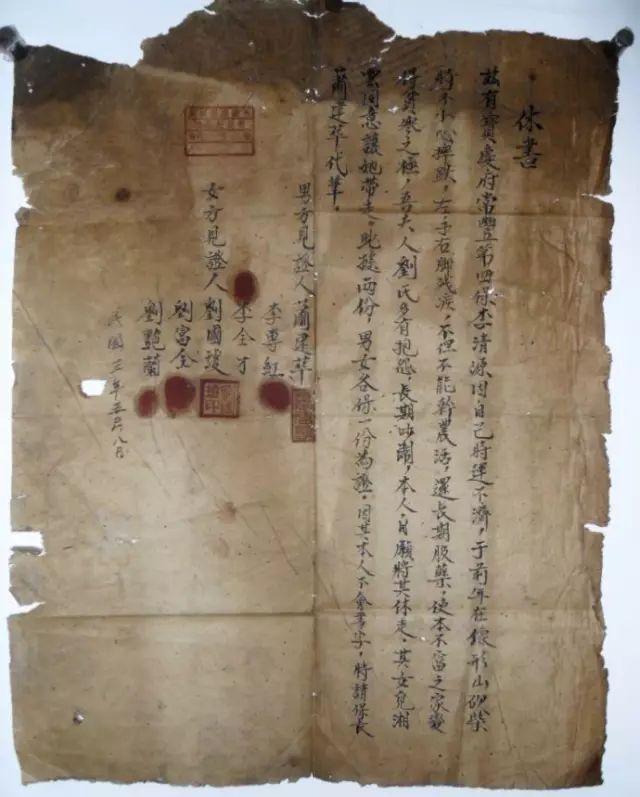 休書
茲有寶慶府常豐第四保李清源因自己時運不濟，于前年在像形山砍柴
時不小心摔跌，左手右脚残疾，不但不能幹農活，還長期服藥，使本不富之家變
得貧寒之極，吾夫人劉氏多有抱怨，長期吵鬧，本人自願將其休走，其女兒湘
雲同意讓她带走。此據两份，男女各保一份為證。因其本人不會書字，特請保長
蕭建華代筆。
男方見證人蕭建華
李專紅
李全才
女方見證人劉國
劉富全
劉艷蘭
民國三年五月八日